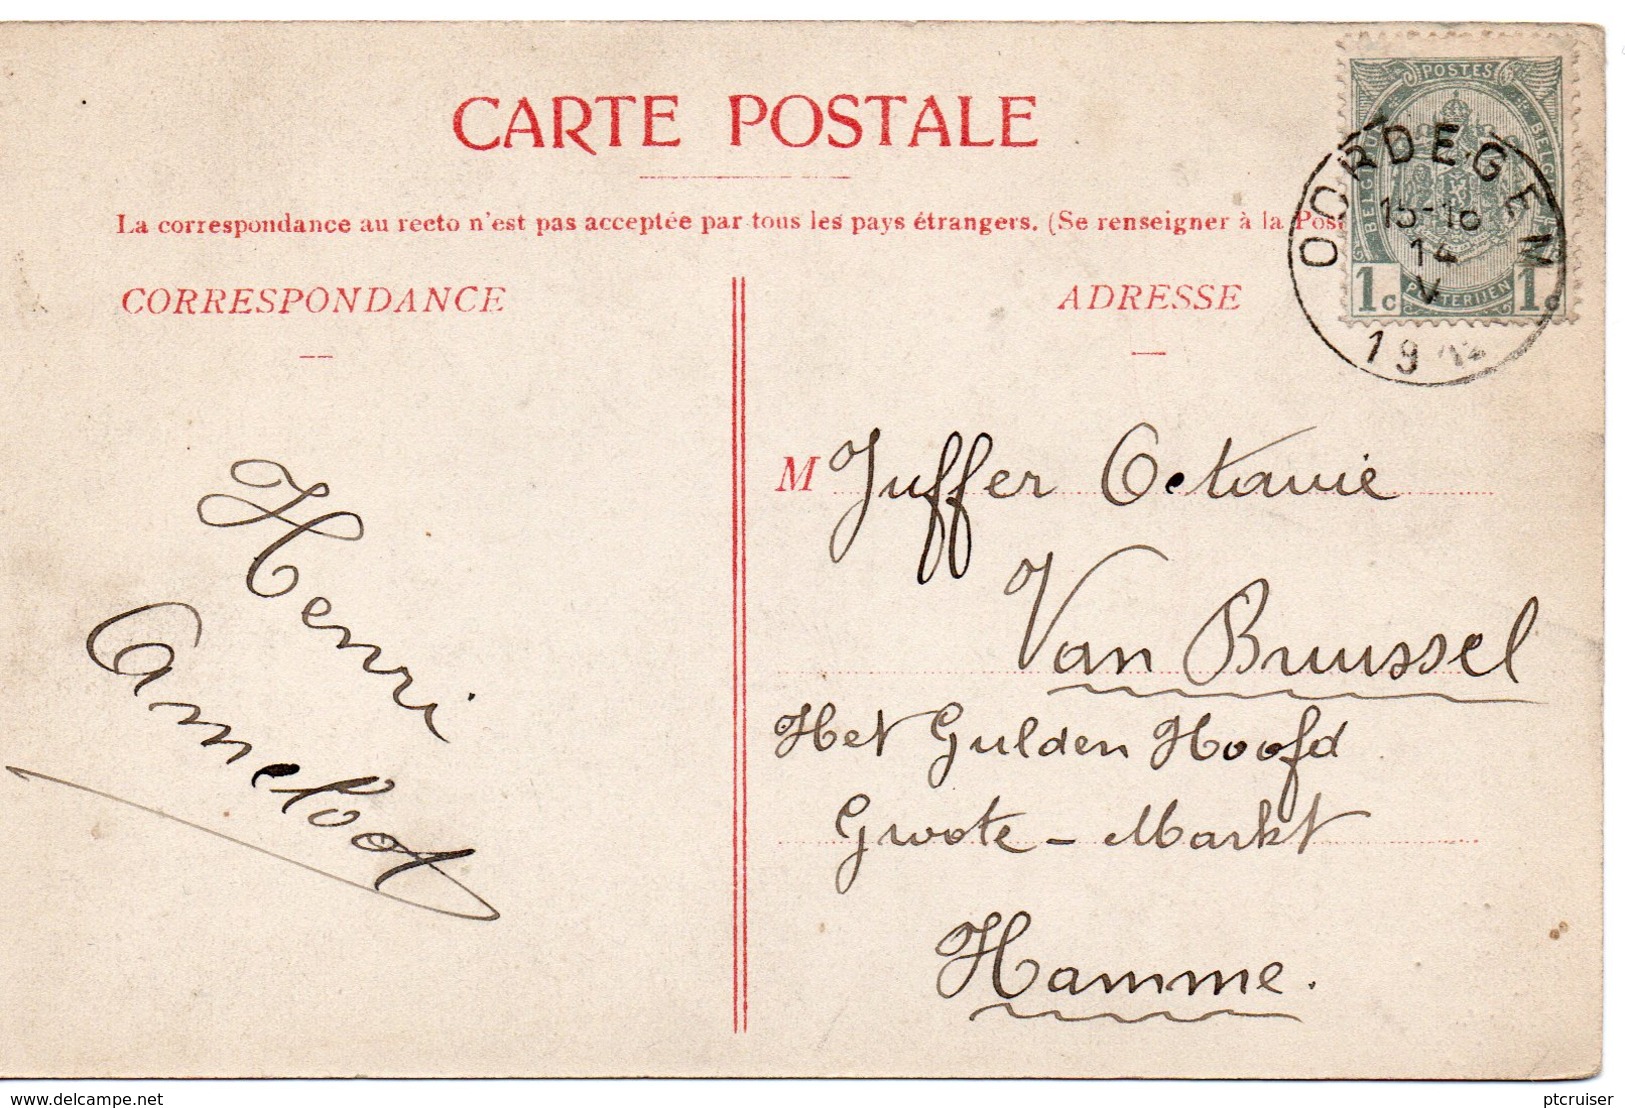 CARTE POSTALE
La correspondance au recto n'est pas acceptée par tous les pays étrangers. (Se renseigner à la Pos
POSTES
BELGIQUE BELGIË
OORDEGEM
15-16
14
V
19
1c POSTERIJEN 1c
CORRESPONDANCE
ADRESSE
Henri
Cameloot
M Juffer Octavie
Van Brussel
Het Gulden Hoofd
Groote - Markt
Hamme.
delcampe.net
ptcruiser